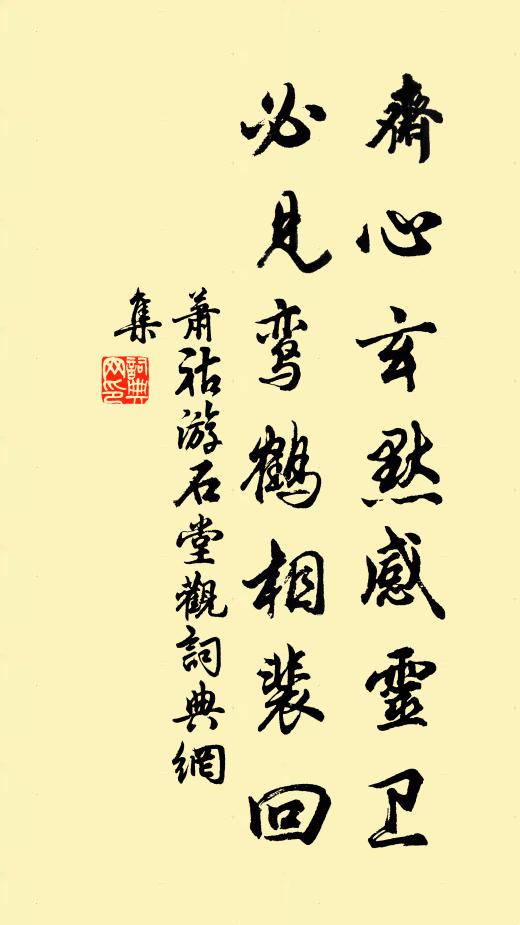 齊心玄默感靈卫
必見鸾鶴相裴回
萧祜游石堂觀詞典網
集
詞典网印